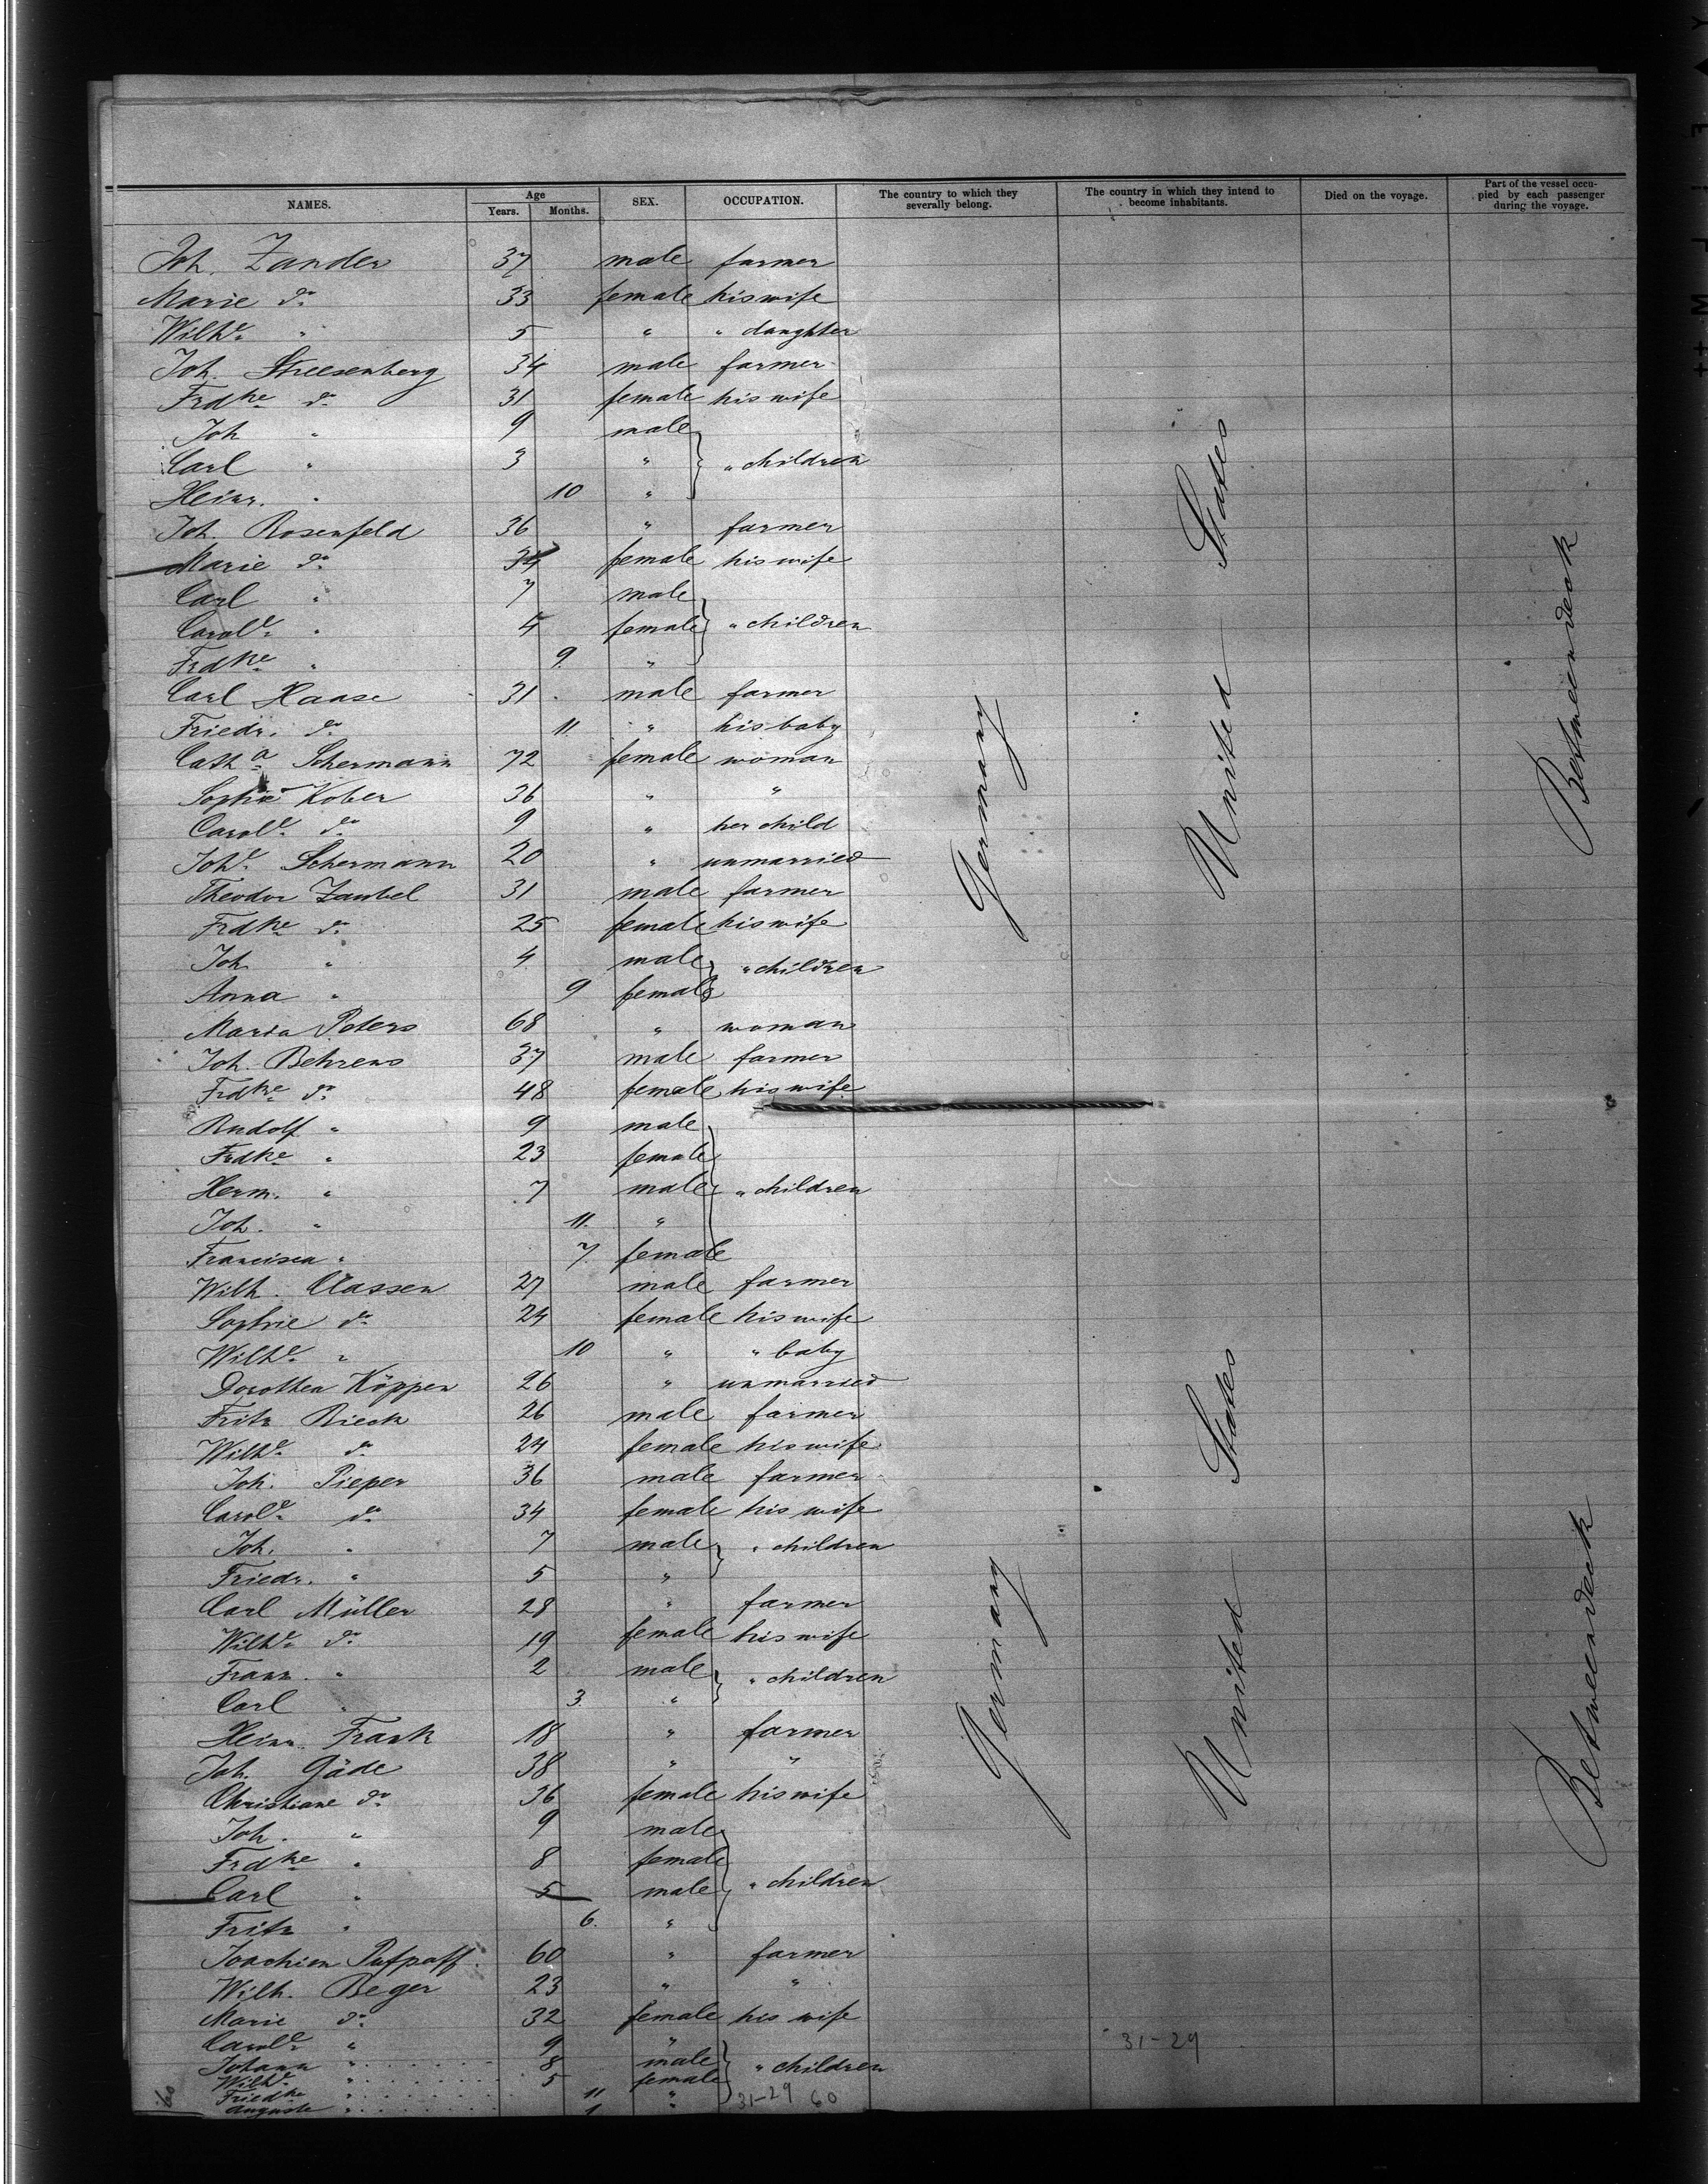 NAMES. Age Years. Months. SEX. OCCUPATION. The country to which they severally belong. The country in which they intend to become inhabitants. Died on the voyage. Part of the vessel occupied by each passenger during the voyage.
Joh. Zander 37 male farmer
Marie do 33 female his wife
Wilhe " 5 " " daughter
Joh. Streesenberg 34 male farmer
Frdke do 31 female his wife
Joh " 9 male
Carl " 3 " " children
Heinr. " 10 "
Joh. Rosenfeld 36 " farmer
Marie do 34 female his wife
Carl " 7 male
Carole " 4 female " children
Frdke " 9 "
Carl Haase 31 male farmer
Friedr. do 11 " his baby
Catha Schermann 72 female woman
Sophie Kober 36 " "
Carole do 9 " her child
Johe Schermann 20 " unmarried
Theodor Zaubel 31 male farmer
Frdke do 25 female his wife
Joh " 4 male " children
Anna " 9 female
Maria Peters 68 " woman
Joh. Behrens 37 male farmer
Frdke do 48 female his wife
Rudolf " 9 male
Frdke " 23 female
Herm. " 7 male " children
Joh. " 11 "
Francisca " 7 female
Wilh. Classen 27 male farmer
Sophie do 24 female his wife
Wilhe " 10 " " baby
Dorothea Köppen 26 " unmarried
Fritz Rieck 26 male farmer
Wilhe do 24 female his wife
Joh. Pieper 36 male farmer
Carole do 34 female his wife
Joh. " 7 male " children
Friedr. " 5 "
Carl Müller 28 " farmer
Wilhe do 19 female his wife
Franz " 2 male " children
Carl " 3 "
Heinr. Frank 18 " farmer
Joh. Gäde 38 " "
Christiane do 36 female his wife
Joh. " 9 male
Frdke " 8 female
Carl " 5 male " children
Fritz " 6 "
Joachim Pufpaff 60 " farmer
Wilh. Beger 23 " "
Marie do 32 female his wife
Carole " 9 "
Johann " 8 male " children
Wilhe " 5 female
Friedke " 11 "
Auguste " 1
31-29 60
60
Germany
Germany
United States
United States
31-29
Betweendeck
Betweendeck